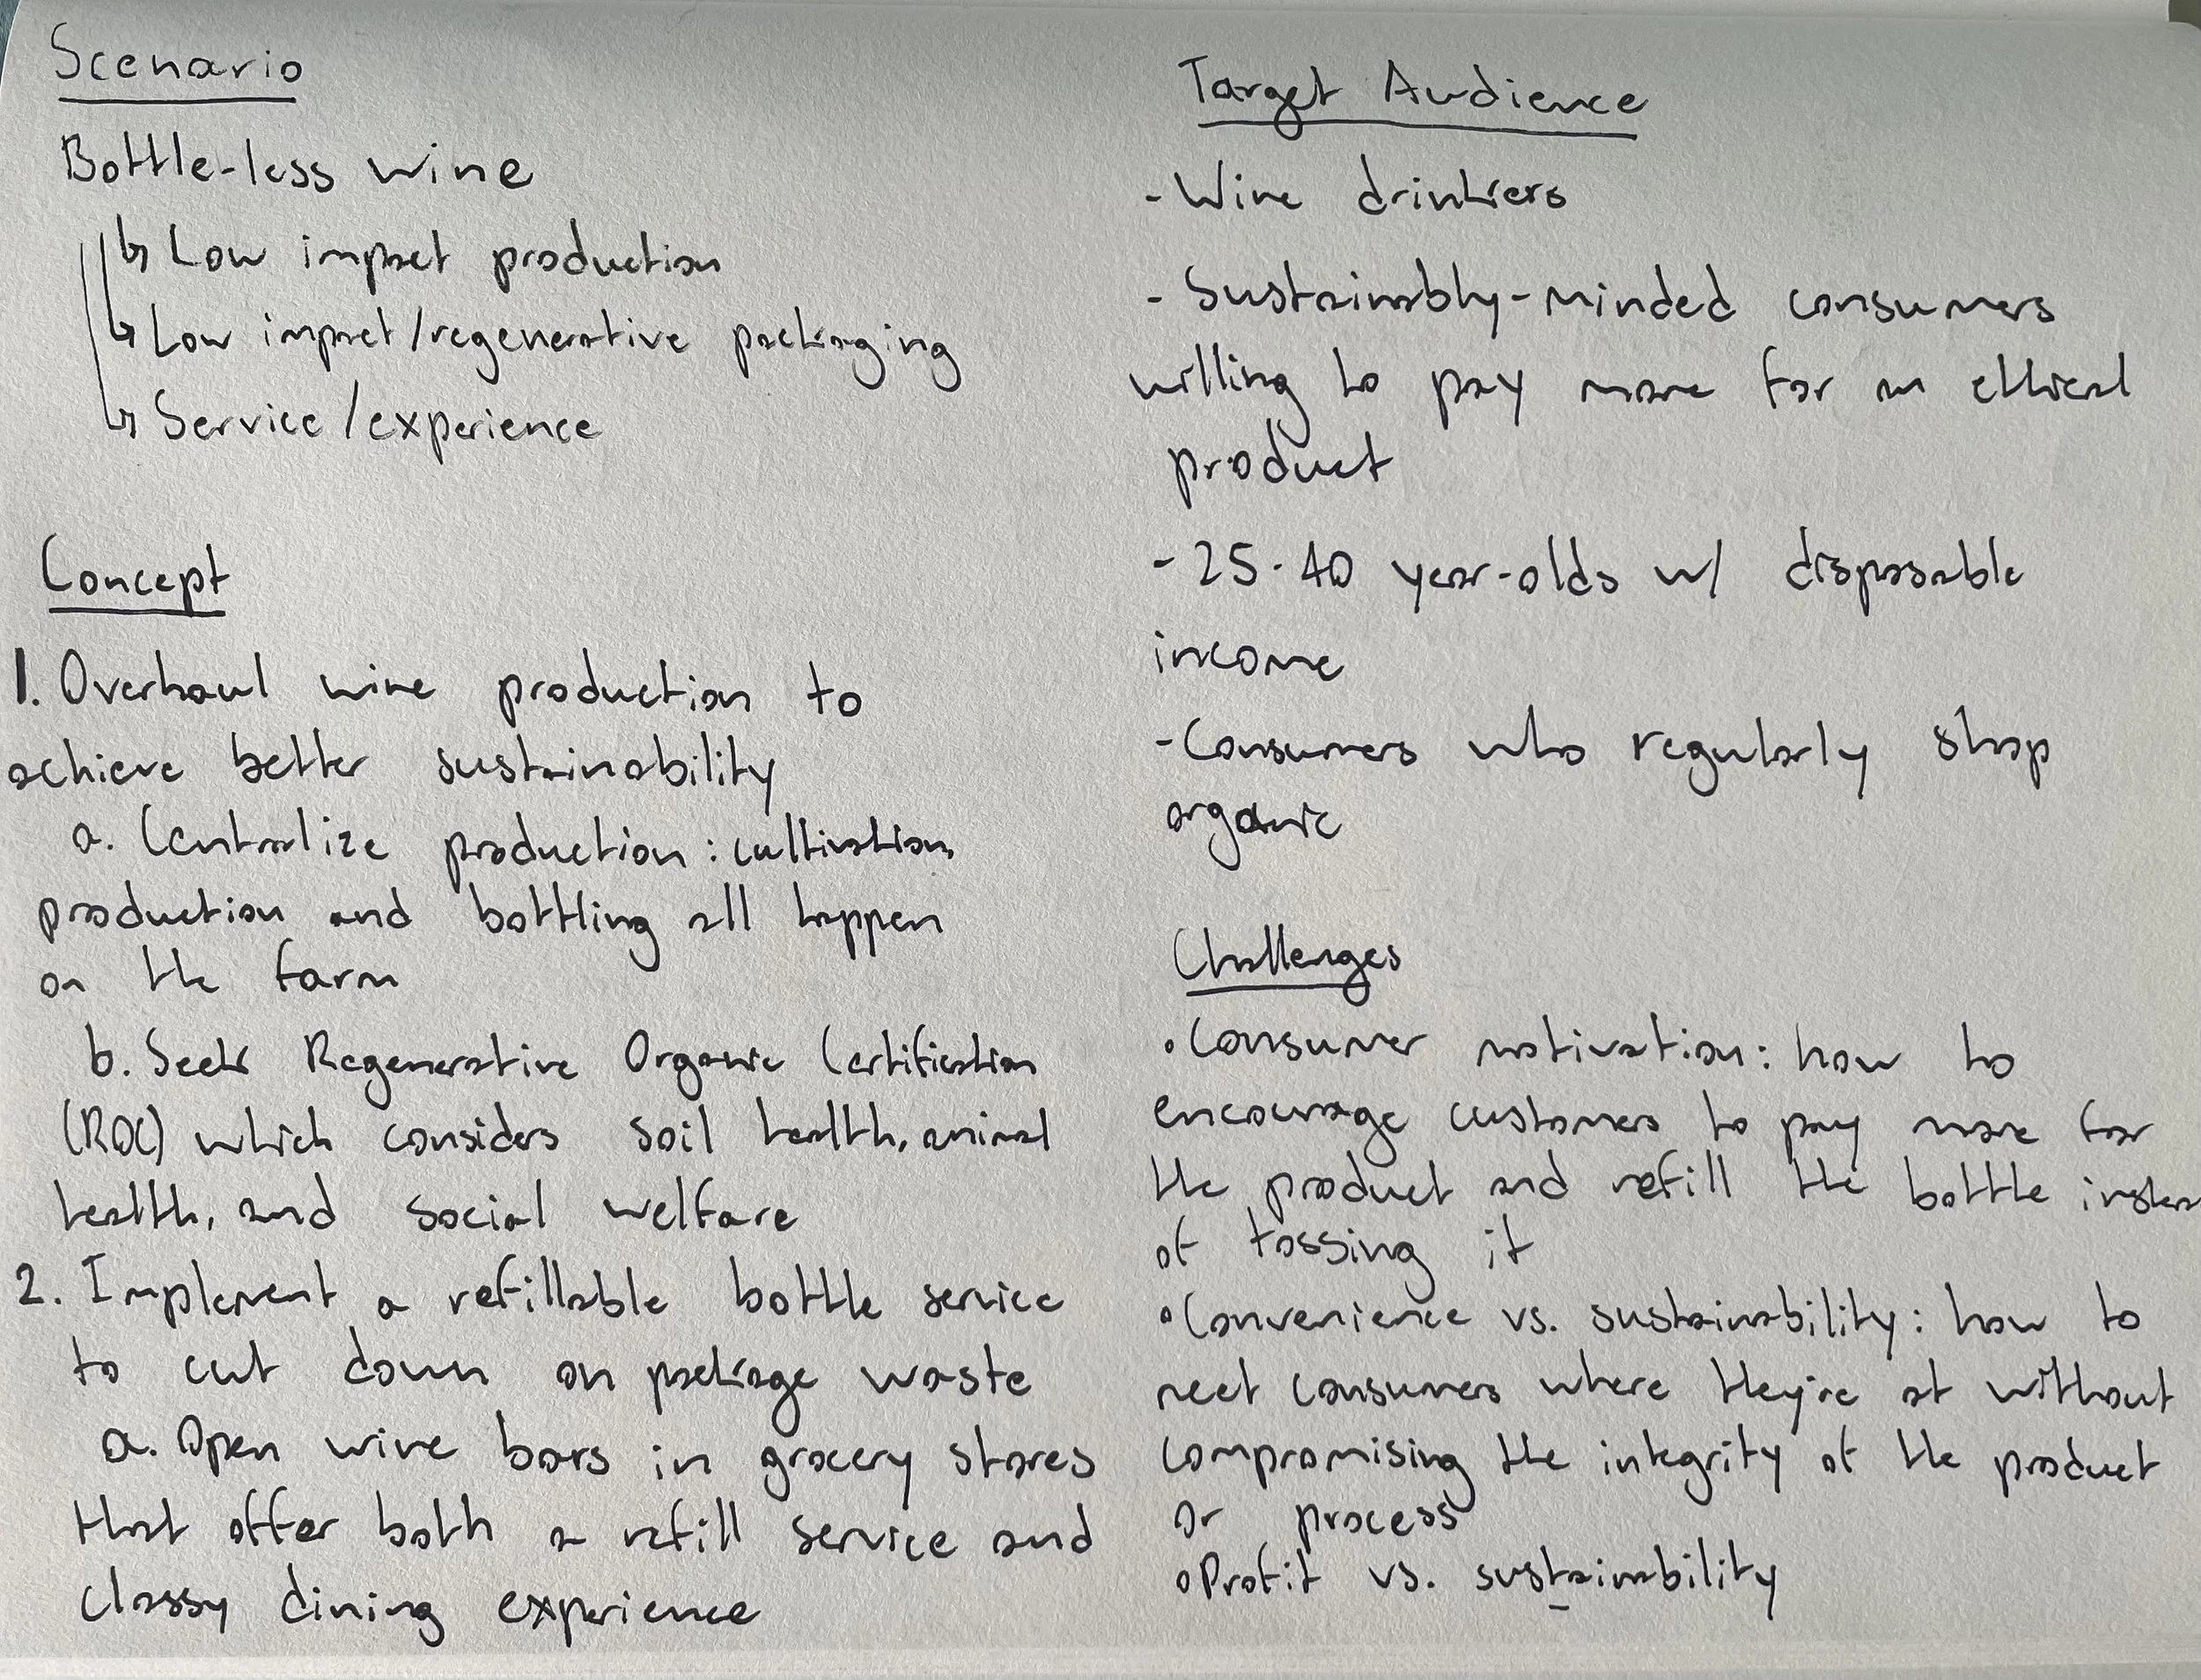 Scenario
Bottle-less wine
↳ Low impact production
↳ Low impact/regenerative packaging
↳ Service/experience
Concept
1. Overhaul wine production to
achieve better sustainability
a. Centralize production: cultivation,
production and bottling all happen
on the farm
b. Seek Regenerative Organic Certification
(ROC) which considers soil health, animal
health, and social welfare
2. Implement a refillable bottle service
to cut down on package waste
a. Open wine bars in grocery stores
that offer both a refill service and
classy dining experience
Target Audience
- Wine drinkers
- Sustainably-minded consumers
willing to pay more for an ethical
product
- 25-40 year-olds w/ disposable
income
- Consumers who regularly shop
organic
Challenges
• Consumer motivation: how to
encourage customers to pay more for
the product and refill the bottle instea
of tossing it
• Convenience vs. sustainability: how to
meet consumers where they're at without
compromising the integrity of the product
or process
• Profit vs. sustainability